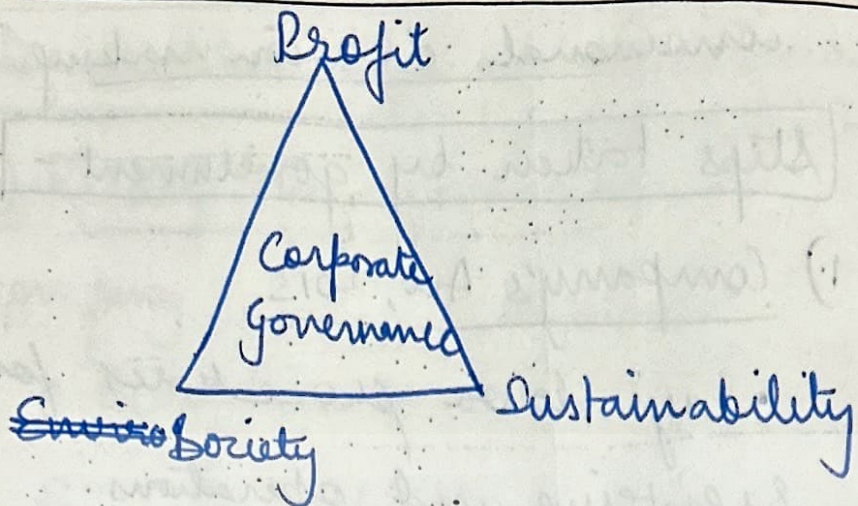 Profit
Corporate
Governance
Society
Sustainability